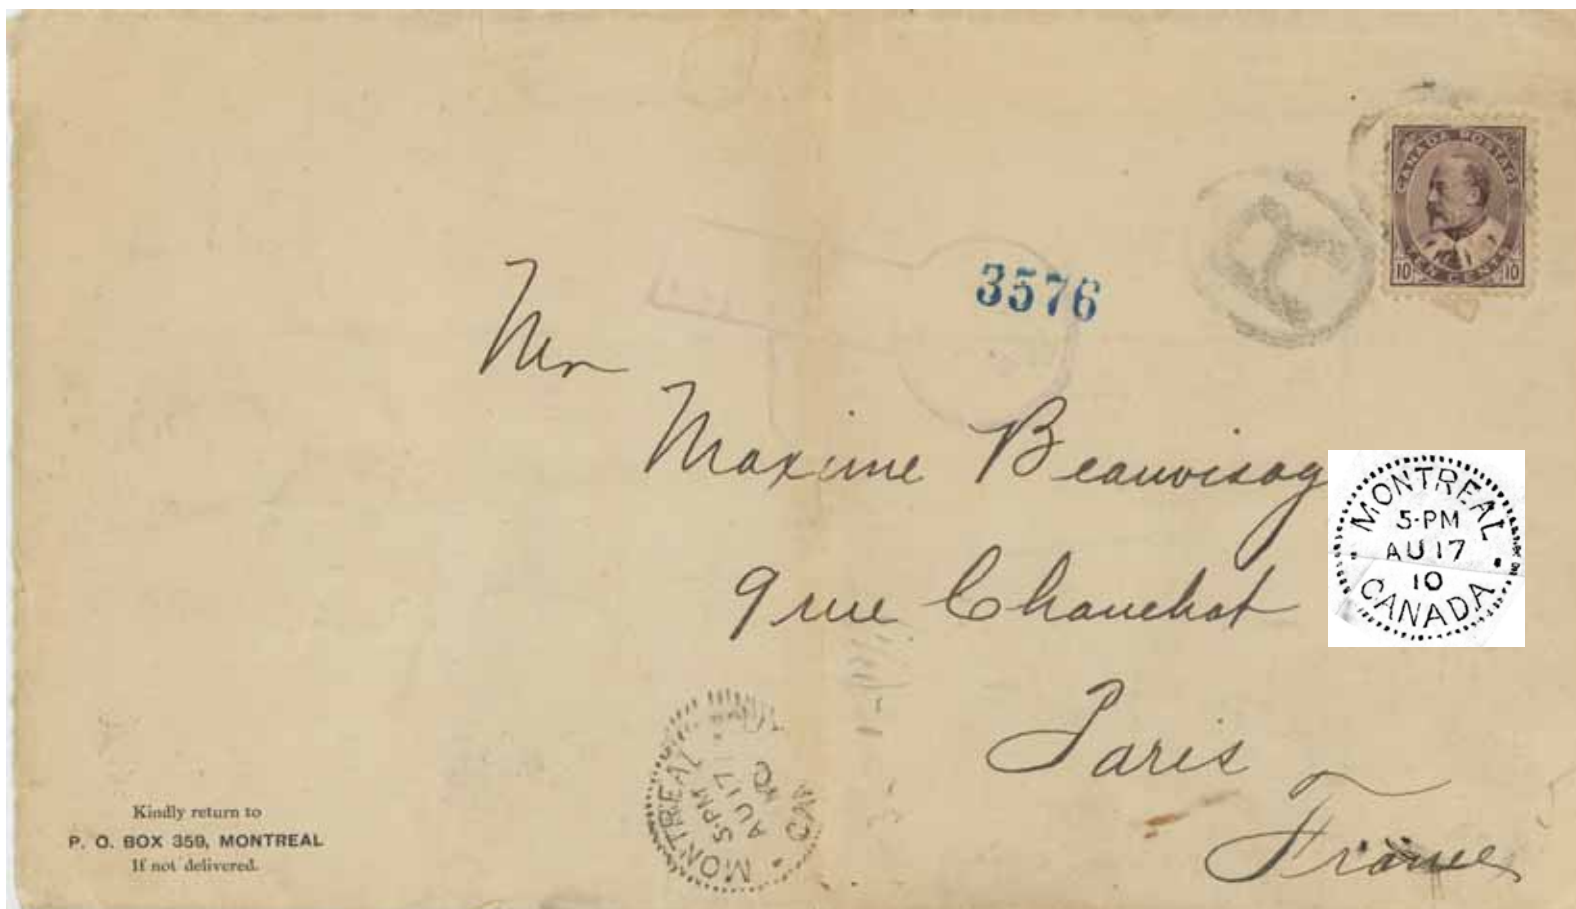 CANADA POSTAGE
TEN CENTS
10 10
R
3576
Mr
Maxime Beauvisag
9 rue Chauchat
Paris
France
MONTREAL
5-PM
AU 17
10
CANADA
MONTREAL
5-PM
AU 17
10
CANA
Kindly return to
P. O. BOX 359, MONTREAL
If not delivered.